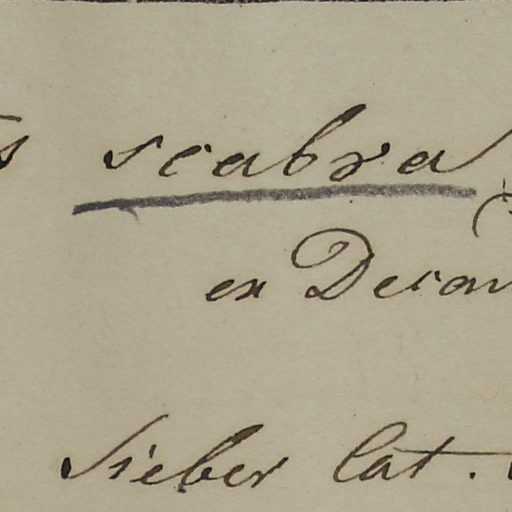 s scabra
ex Decan
Sieber Cat.